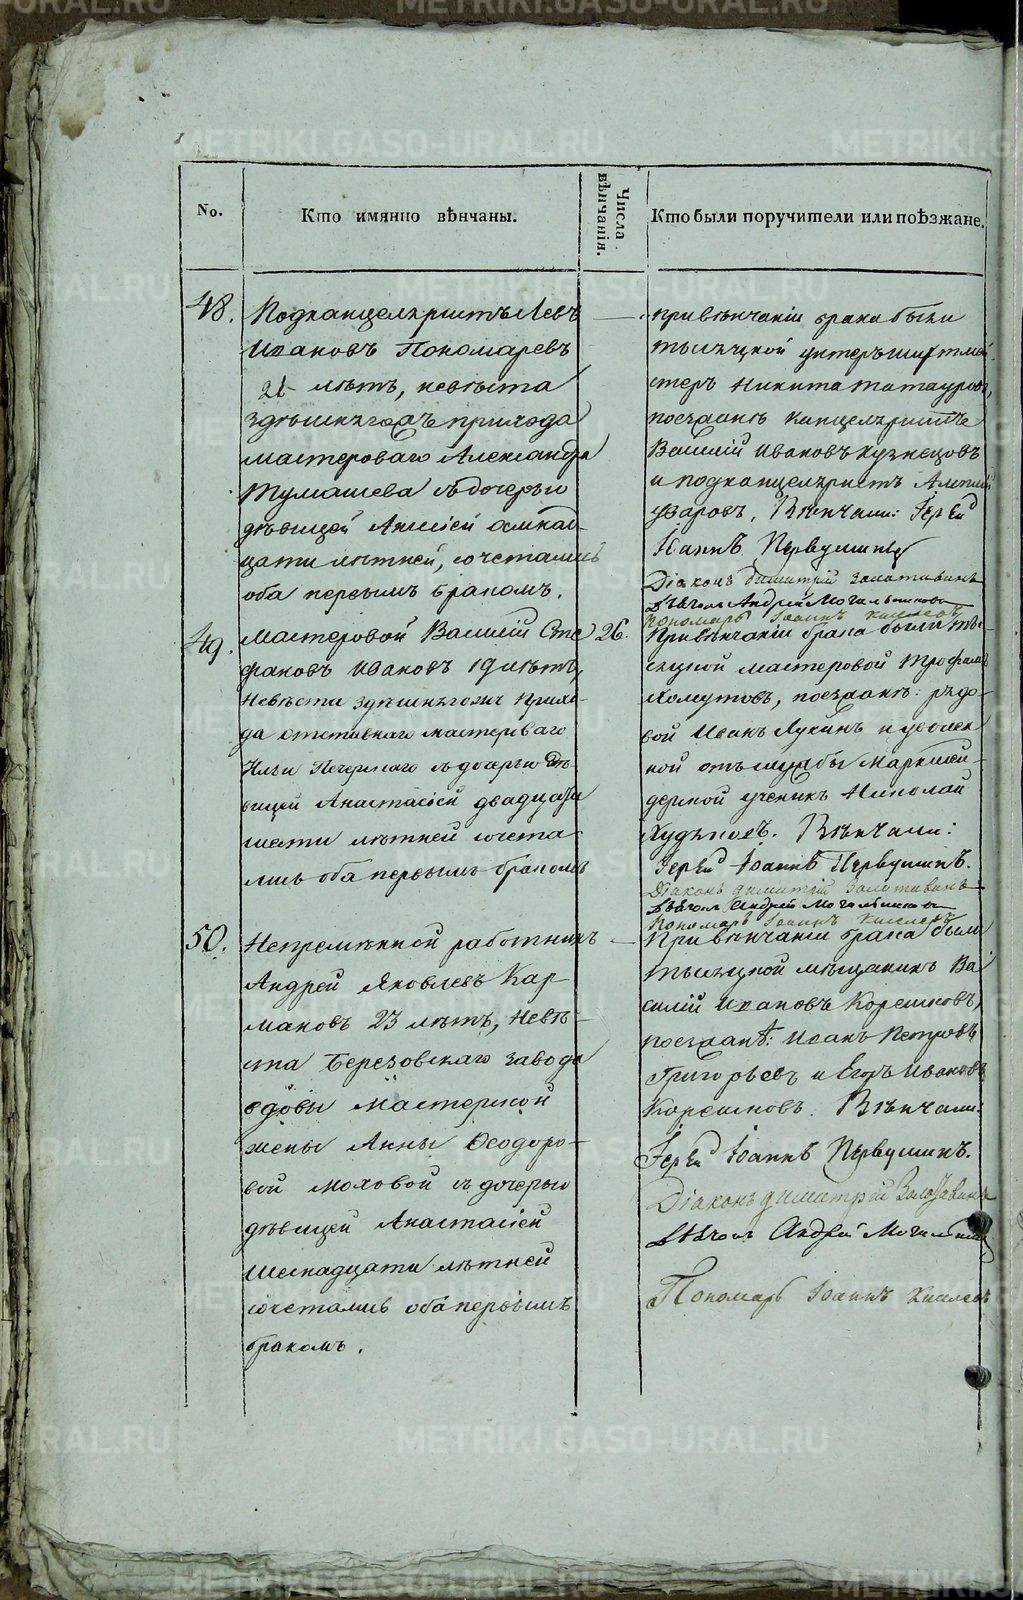 No.
Кто имянно вѣнчаны.
Числа вѣнчанія.
Кто были поручители или поѣзжане.
48.
Подканцеляристъ Левъ
Ивановъ Пономаревъ
21 лѣтъ, невѣста
здѣшняго прихода
мастероваго Александра
Тумашева съ дочерью
дѣвицей
цати лѣтней, сочетались
оба первымъ бракомъ.
при вѣнчаніи брака были
тысяцкой унтеръшихтмей
стеръ Никита Татауровъ,
поезжанѣ канцеляристъ
Василій Ивановъ Кузнецовъ
и подканцеляристъ Алексѣй
Уваровъ. Вѣнчали: Іерей
Іоаннъ Первушинъ
Діаконъ Димитрій Золотавинъ
Дьячокъ Андрей Могильниковъ
Пономарь Іоаннъ Киселевъ
49.
Мастеровой Василій Сте
фановъ Ивановъ 19 лѣтъ,
Невѣста здѣшнягожъ прихо-
да отставнаго мастероваго
Ильи Печерскаго съ дочерью дѣ-
вицей Анастасіей двадцати
шести лѣтней сочета
лись оба первымъ бракомъ
26.
При вѣнчаніи брака были ты-
сяцкой мастеровой Трофимъ
Хомутовъ, поезжанѣ: рядо-
вой Иванъ Лукинъ и уволен
ной отъ службы Маркшей-
дерской ученикъ Николай
Худяковъ. Вѣнчали:
Іерей Іоаннъ Первушинъ.
Діаконъ Димитрій Золотавинъ
Дьячокъ Андрей Могильниковъ
Пономарь Іоаннъ Киселевъ
50.
Непремѣнной работникъ
Андрей Яковлевъ Кар
мановъ 23 лѣтъ, Невѣ-
ста Березовскаго завода
вдовы Мастерской
жены Анны Ѳеодоро-
вой Моховой съ дочерью
дѣвицей Анастасіей
шеснадцати лѣтней
сочетались оба первымъ
бракомъ.
При вѣнчаніи брака были
тысяцкой мѣщанинъ Ва
силій Ивановъ Корешковъ,
поезжанѣ: Иванъ Петровъ
Григорьевъ и Егоръ Ивановъ
Корешковъ. Вѣнчали:
Іерей Іоаннъ Первушинъ.
Діаконъ Димитрій Золотавинъ
Дьячокъ Андрей Могильников
Пономарь Іоаннъ Киселевъ
METRIKI.GASO-URAL.RU